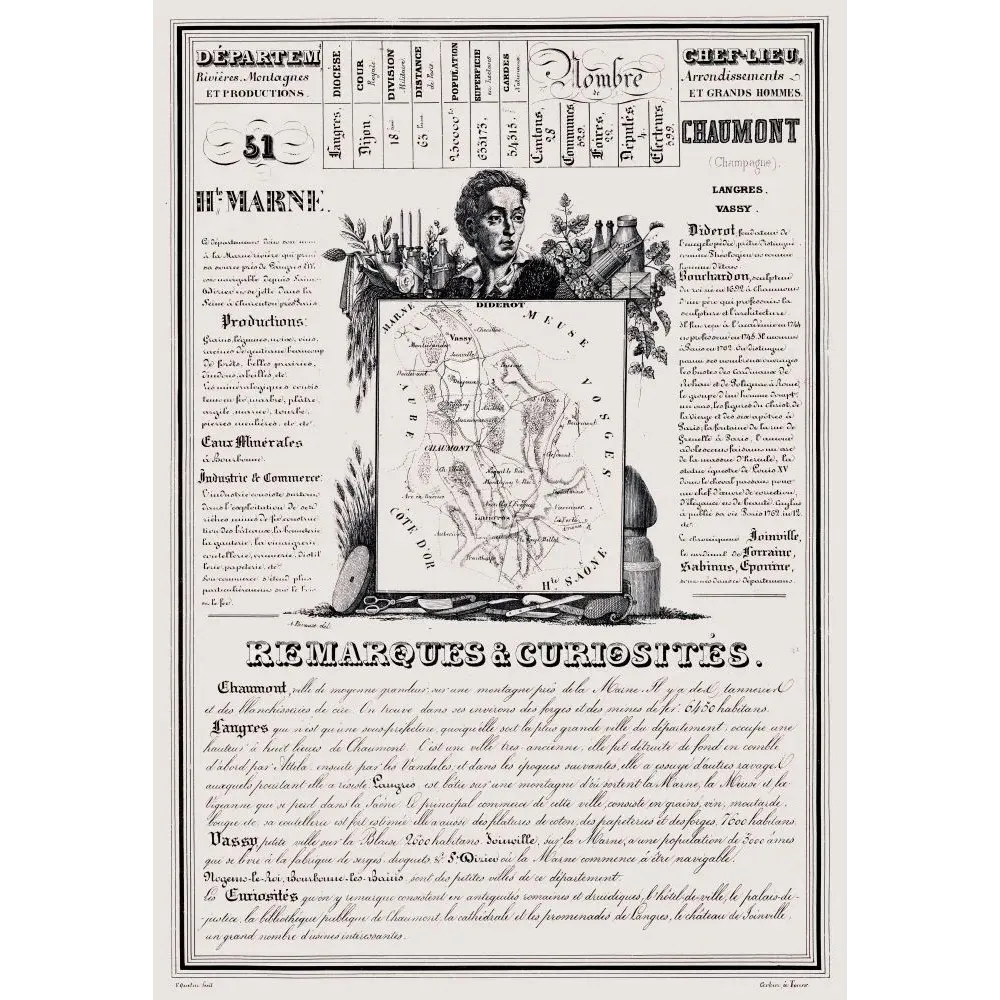 DÉPARTEMT
Rivières, Montagnes
ET PRODUCTIONS.
DIOCÈSE. Langres,
COUR Royale Dijon,
DIVISION Militaire. 18
DISTANCE de Paris. 63
POPULATION
SUPERFICIE en hectares 633173,
GARDES Nationaux 34315,
Nombre
de
Cantons, 28
Communes, 529.
Foires,
Députés, 4.
Electeurs, 599.
CHEF-LIEU,
Arrondissements
ET GRANDS HOMMES.
51
Hte MARNE.
Ce département doit son nom
à la Marne rivière qui prend
sa source près de Langres
navigable depuis Saint-
Dizier se jette dans la
Seine à charenton près Paris
Productions:
Grains, légumes, noix, vins,
racines de gentiane beaucoup
de forêts, belles prairies,
abeilles, etc.
minéralogiques consis
tent en fer, marbre, plâtre,
argile, marne, tourbe,
pierres meulières, etc. etc.
Eaux Minérales
à Bourbonne.
Industrie & Commerce:
L'industrie consiste surtout
dans l'exploitation de ses
mines de fer construc
tion des bateaux, la bonneterie
la ganterie, la vinaigrerie,
coutellerie, distil
lerie, papeterie, etc.
Son commerce s'étend plus
particulièrement sur le
le fer.
CHAUMONT
(Champagne).
LANGRES.
VASSY.
Diderot, fondateur de
l'encyclopédie, distingué
comme Théologien et comme
homme d'état.
Bouchardon, sculpteur
du roi né en 1692 à chaumont
d'un père qui professait la
sculpture et l'architecture.
Il fut reçu à l'académie en 1744
et professeur en 1745. Il mourut
à Paris en 1762. On distingue
parmi ses nombreux ouvrages
les bustes des Cardinaux de
Rohan et de Polignac à Rome,
le groupe d'un homme dompt
un ours, les figures du christ, de
la vierge et des six apôtres à
Paris, la fontaine de la rue de
Grenelle à Paris, l'amour
adolescent faisant un arc
de la massue d'hercule, la
statue équestre de Louis XV
dont le cheval passait pour
un chef d'œuvre de correction,
d'élégance et de beauté. Caylus
a publié sa vie Paris 1762. in 12.
etc.
Le chroniqueur Joinville,
le cardinal de Lorraine,
Sabinus, Eponine,
sont nés dans ce département.
DIDEROT
MARNE
MEUSE
VOSGES
AUBE
CÔTE D'OR
Hte SAÔNE
Vassy
Joinville
CHAUMONT
Langres
REMARQUES & CURIOSITÉS.
Chaumont, ville de moyenne grandeur, sur une montagne près de la Marne. Il y a des tanneries
et des blanchisseries de cire. On trouve dans ses environs des forges et des mines de fer. 6450 habitans.
Langres qui n'est qu'une sous-préfecture, quoiqu'elle soit la plus grande ville du département, occupe une
hauteur à huit lieues de Chaumont. C'est une ville très ancienne, elle fut détruite de fond en comble
d'abord par Attila, ensuite par les Vandales, et dans les époques suivantes, elle a essuyé d'autres ravages
auxquels pourtant elle a résisté. Langres est bâtie sur une montagne d'où sortent la Marne, la Meuse et la
Vigeanne qui se perd dans la Saône. Le principal commerce de cette ville, consiste en grains, vin, moutarde,
bougie etc. sa coutellerie est fort estimée elle a aussi des filatures de coton, des papeteries et des forges. 7600 habitans.
Vassy petite ville sur la Blaise 2600 habitans. Joinville, sur la Marne, a une population de 3000 âmes
qui se livre à la fabrique de serges, droguets, &. St. Dizier où la Marne commence à être navigable.
Nogent-le-Roi, Bourbonne-les-Bains sont des petites villes de ce département.
Les Curiosités qu'on y remarque consistent en antiquités romaines et druidiques, l'hôtel-de-ville, le palais-de-
justice, la bibliothèque publique de Chaumont, la cathédrale et les promenades de Langres, le château de Joinville,
un grand nombre d'usines intéressantes.